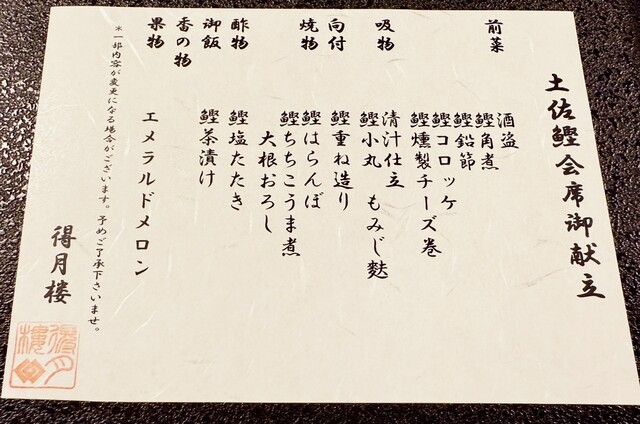 土佐鰹会席御献立
前菜
酒盗
鰹角煮
鰹鉛節
鰹コロッケ
鰹燻製チーズ巻
吸物
清汁仕立
鰹小丸 もみじ麩
向付
鰹重ね造り
焼物
鰹はらんぼ
鰹ちちこうま煮
大根おろし
酢物
鰹塩たたき
御飯
鰹茶漬け
香の物
果物
エメラルドメロン
＊一部内容が変更になる場合がございます。予めご了承下さいませ。
得月楼
得月樓